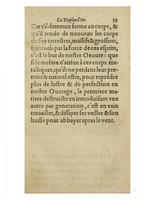 La Toyson d'Or. 59
Car s'il demeure ferme au corps, &
qu'il rende de nouveau les corps
de soy terrestres, massifs & grossiers,
spirituels par la force de ces esprits,
c'est là but de nostre Oeuure: que si
il se mesme n'arriue à ces corps metalliques,
qu'ils ne perdent leur premier
& naturel estre, pour reprendre
plus de lustre & de perfection en
nostre Ouurage, la premiere matiere
destruicte en introduisant vne
autre par generation, c'est en vain
trauailler, & dissiper ses veilles & son
bausse pour abbayer apres le vent.